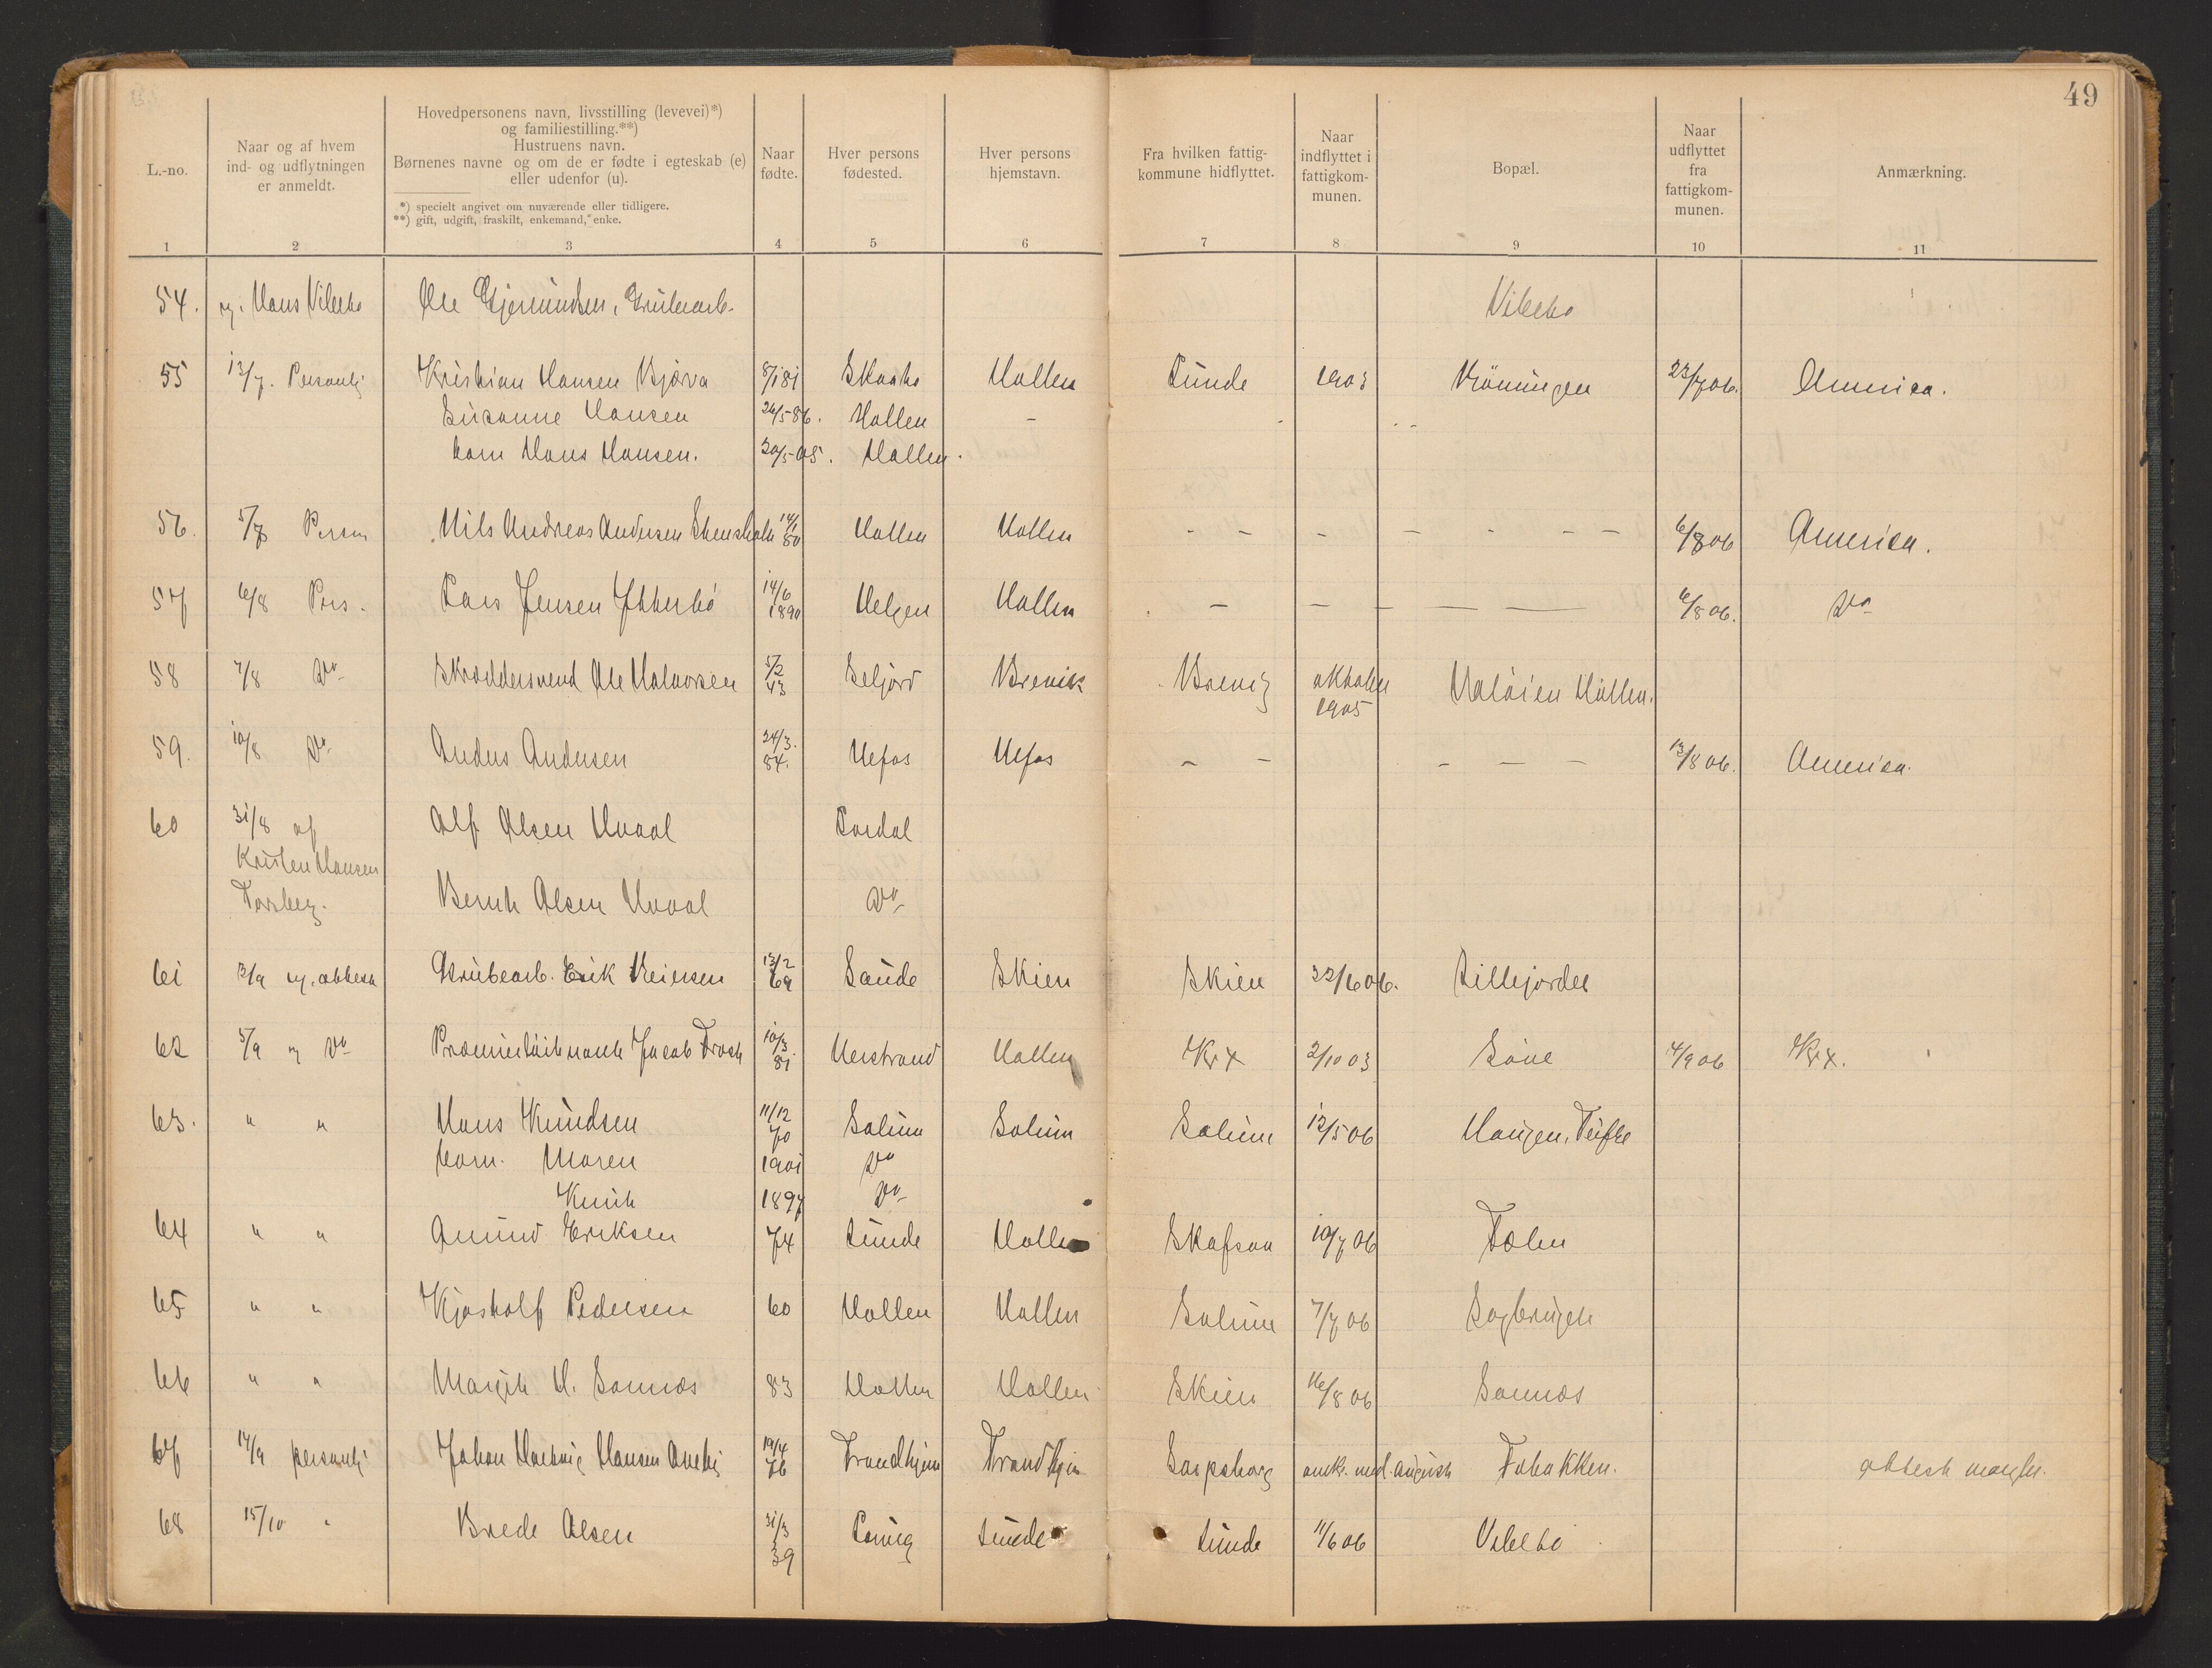 49
L.-no.
Naar og af hvem
ind- og udflytningen
er anmeldt.
Hovedpersonens navn, livsstilling (levevei)*)
og familiestilling.**)
Hustruens navn.
Børnenes navne og om de er fødte i egteskab (e)
eller udenfor (u).
*) specielt angivet om nuværende eller tidligere.
**) gift, udgift, fraskilt, enkemand, enke.
Naar
fødte.
Hver persons
fødested.
Hver persons
hjemstavn.
Fra hvilken fattig-
kommune hidflyttet.
Naar
indflyttet i
fattigkom-
munen.
Bopæl.
Naar
udflyttet
fra
fattigkom-
munen.
Anmærkning.
1 2 3 4 5 6 7 8 9 10 11
54. Hans Vibeto Ole Gjermundsen, Grubearb. Vibeto
55 13/7. Personlig Kristian Hansen Bjørva 8/1 81 Skaato Hollen Lunde 1903 Krøningen 23/7 06. America.
Susanne Hansen 26/5 86. Hollen -
barn Hans Hansen. 20/5-05. Hollen.
56. 5/7 Person Nils Andreas Andersen Stensholt 14/1 80 Hollen Hollen - - - - - - - 6/8 06 America.
57 6/8 Pers. Lars Jensen Ytterbö 14/6 1890 Helgen Hollen - - - - - 6/8 06. Do
58 7/8 Do Skræddersvend Ole Halvorsen 5/2 43 Seljord Brevik Brevig oktober Holøien Hollen.
1905
59. 10/8 Do Anders Andersen 24/3. 84. Ulefos Ulefos - - - - - 13/8 06. America.
60 31/8 af Alf Olsen Hvaal Lardal
Kristen Hansen
Forberg. Bernt Olsen Hvaal Do
61 3/9 attest Grubearb. Erik Reiersen 13/2 69 Saude Skien Skien 22/6 06. Sillejordet
62 5/9 Do Premierløitnant Jacob Frost 10/3. 81 Nerstrand Hollen Krx 2/10 03 Söve 14/9 06 Krx.
63. " " Hans Knudsen 11/12 70 Solum Solum Solum 12/5 06 Haugen, Tufte
barn. Maren 1901 Do
Knut 1897 Do
64 " " Amund Eriksen 74 Lunde Hollen Skafsaa 10/7 06 Fælen
65 " " Kjøstolf Pedersen 60 Hollen Hollen Solum 7/7 06 Sagbrugets
66 " " Margit H. Sannes 83 Hollen Hollen Skien 16/8 06 Sannes
67 14/9 personlig Johan Hansen 19/4 76 Trondhjem Trondhjem Sarpsborg omkr. med. august Tobakken. attest mangler.
68 15/10 " Brede Olsen 31/3 39 Lunde Lunde 11/6 06 Vibeto